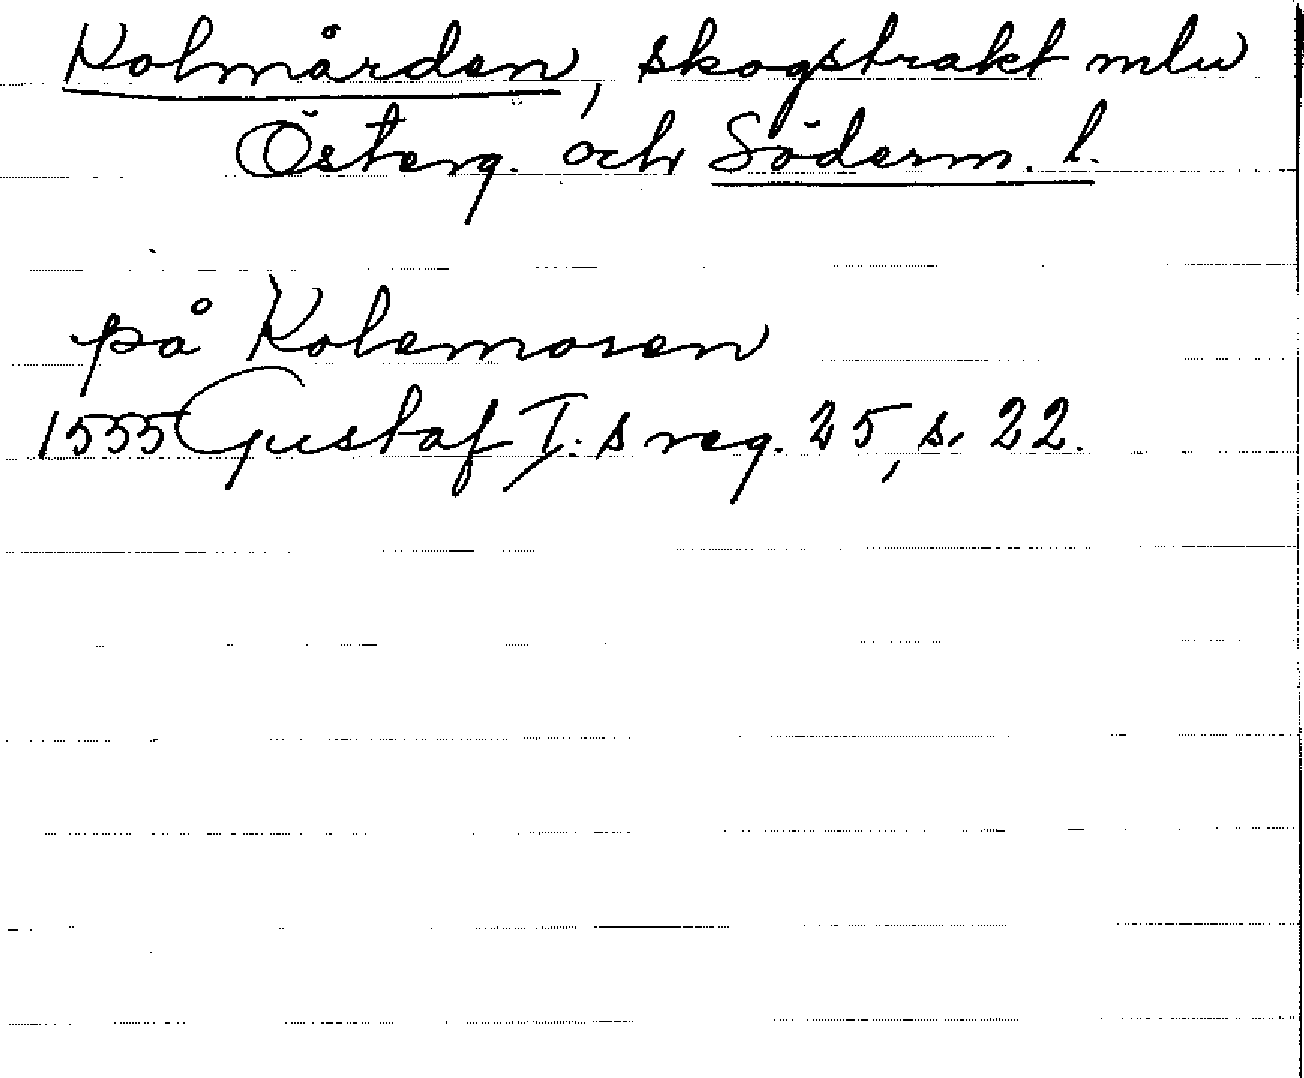 Kolmården, skogstrakt mln
Österg. och Söderm. l.
på Kolemosen
1555 Gustaf I:s reg. 25, s. 22.